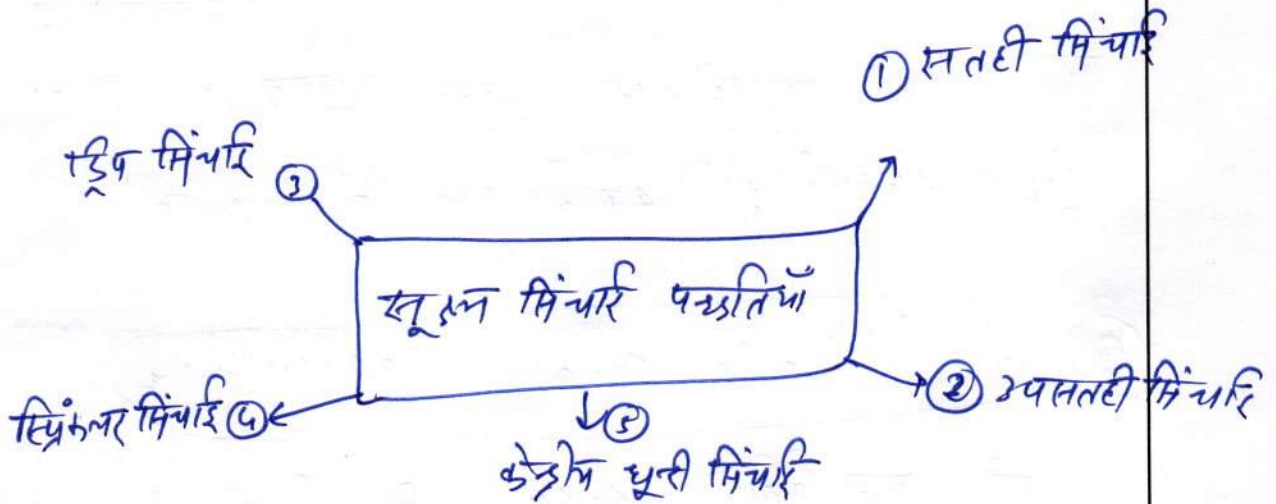 ① सतही सिंचाई
ड्रिप सिंचाई ③
सूक्ष्म सिंचाई पद्धतियाँ
② उपसतही सिंचाई
स्प्रिंकलर सिंचाई ④
⑤
केन्द्रीय धूरी सिंचाई